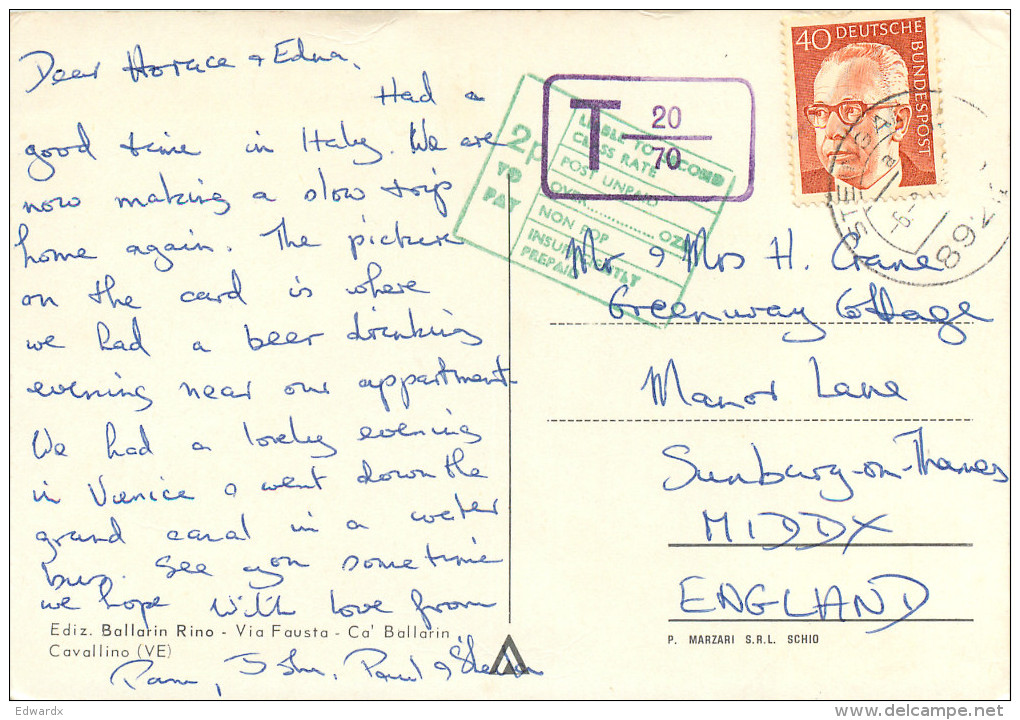 Dear Horace & Edna,
Had a
good time in Italy. We are
now making a slow trip
home again. The picture
on the card is where
we had a beer drinking
evening near our appartment.
We had a lovely evening
in Venice & went down the
grand canal in a water
bus. See you some time
we hope With love from
Pam, John, Paul &
Ediz. Ballarin Rino - Via Fausta - Ca' Ballarin
Cavallino (VE)
40 DEUTSCHE
BUNDESPOST
T 20
70
2p
TO
PAY
LIABLE TO SECOND
CLASS RATE
POST UNPAID
OVER............OZS
NON POP
INSUFFICIENTLY
PREPAID
Mr & Mrs H. Crane
Greenway Cottage
Manor Lane
Sunbury-on-Thames
MIDDX
ENGLAND
P. MARZARI S.R.L. SCHIO
Edwardx
www.delcampe.net